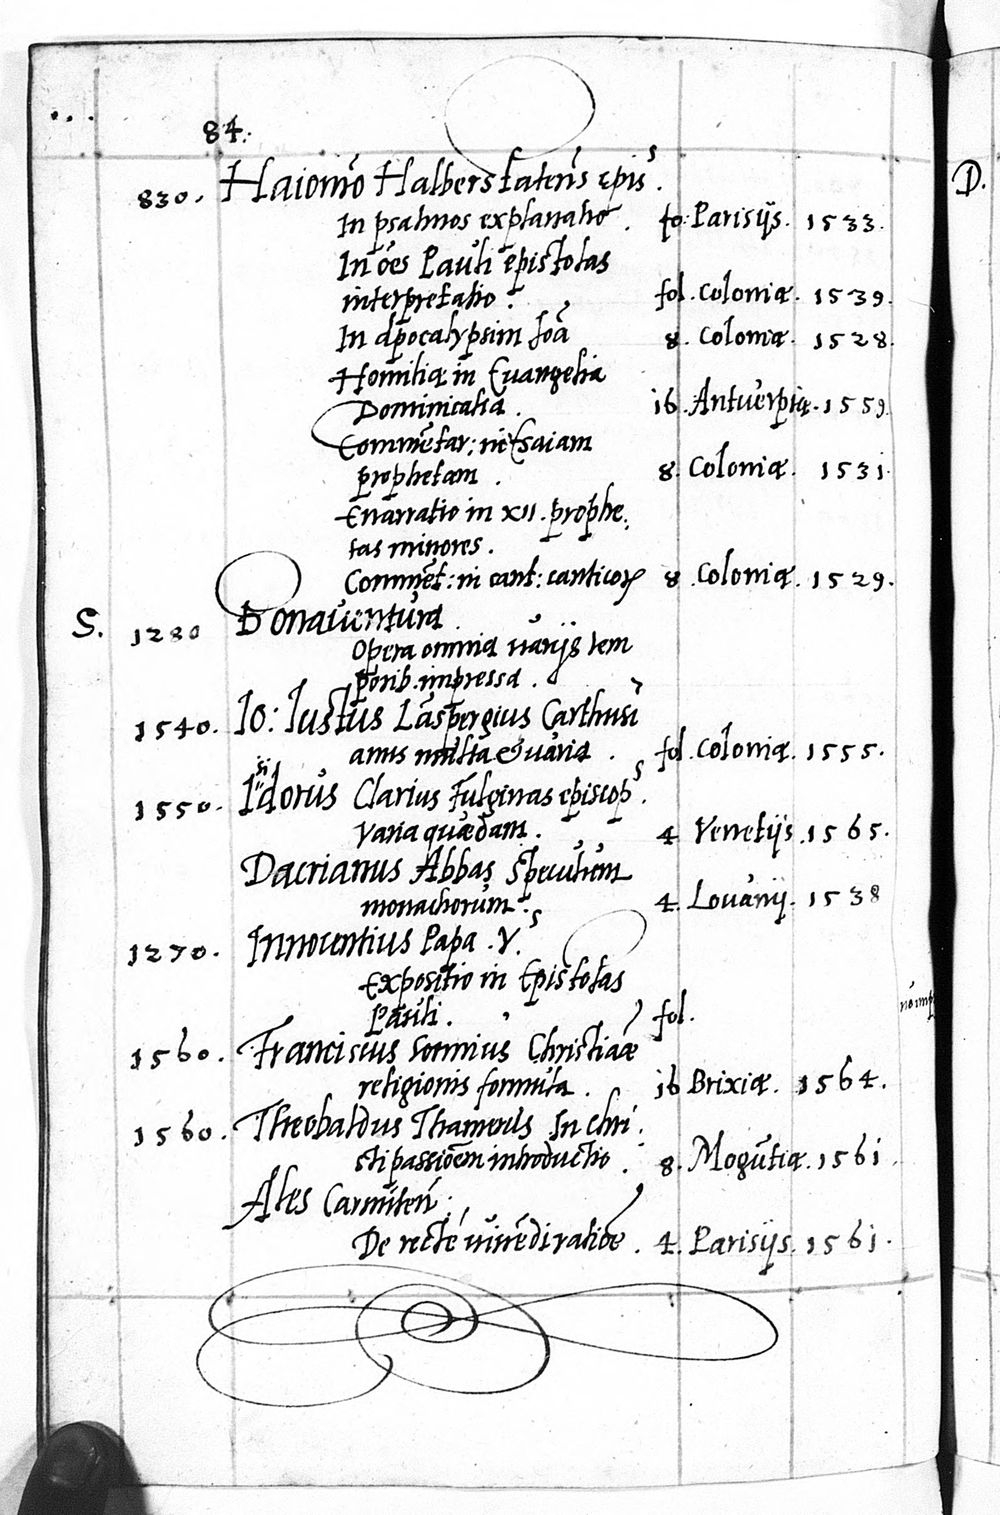 84.
830. Haiomō Halberstateñs epis
In psalmos explanatio. fo. Parisijs. 1533.
In oēs Pauli epistolas
interpretatio. fol. Coloniæ. 1539.
In Apocalypsim Ioā 8. Coloniæ. 1528.
Homiliæ in Evangelia
Dominicalia. 16. Antuerpiæ. 1559.
Commētar: in Esaiam
prophetam. 8. Coloniæ. 1531.
Enarratio in XII. prophe:
tas minores.
Commēt: in cant: canticoꝝ 8. Coloniæ. 1529.
S. 1280 Bonauentura.
Opera omnia varijs tem
porib. impressa.
1540. Io: Iustus Lāspergius Carthusi
anus multa & varia. fol. Coloniæ. 1555.
1550. Isidorus Clarius Fulginas episcop⁹.
Varia quædam. 4. Venetijs. 1565.
Dacrianus Abbas Speculum
monachorum. 4. Louanij. 1538
1270. Innocentius Papa .V.
Expositio in Epistolas
Pauli. fol.
1560. Franciscus Sonnius Christiāæ
religionis formula. 16 Brixiæ. 1564.
1560. Theobaldus Thamerus In Chri.
sti passiōem introductio. 8. Mogūtiæ. 1561.
Ales Carmiteñ.
De recte viuēdi ratiōe. 4. Parisijs. 1561.
D.